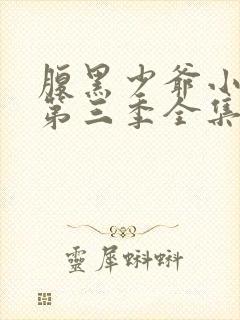 腹黑少爷小
第三季全集
靈犀蝌蝌